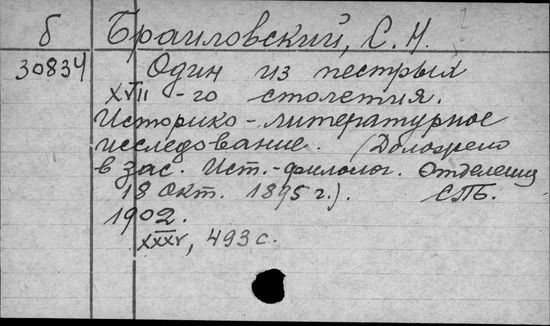 б Браиловский, С. Н.
30834 Один из пестрых
XVII-го столетия.
Историко-литературное
исследование. (Доложено
в зас. Ист.-филолог. Отделения
18 Окт. 1895 г.). СПБ.
1902.
XXXV, 493 с.